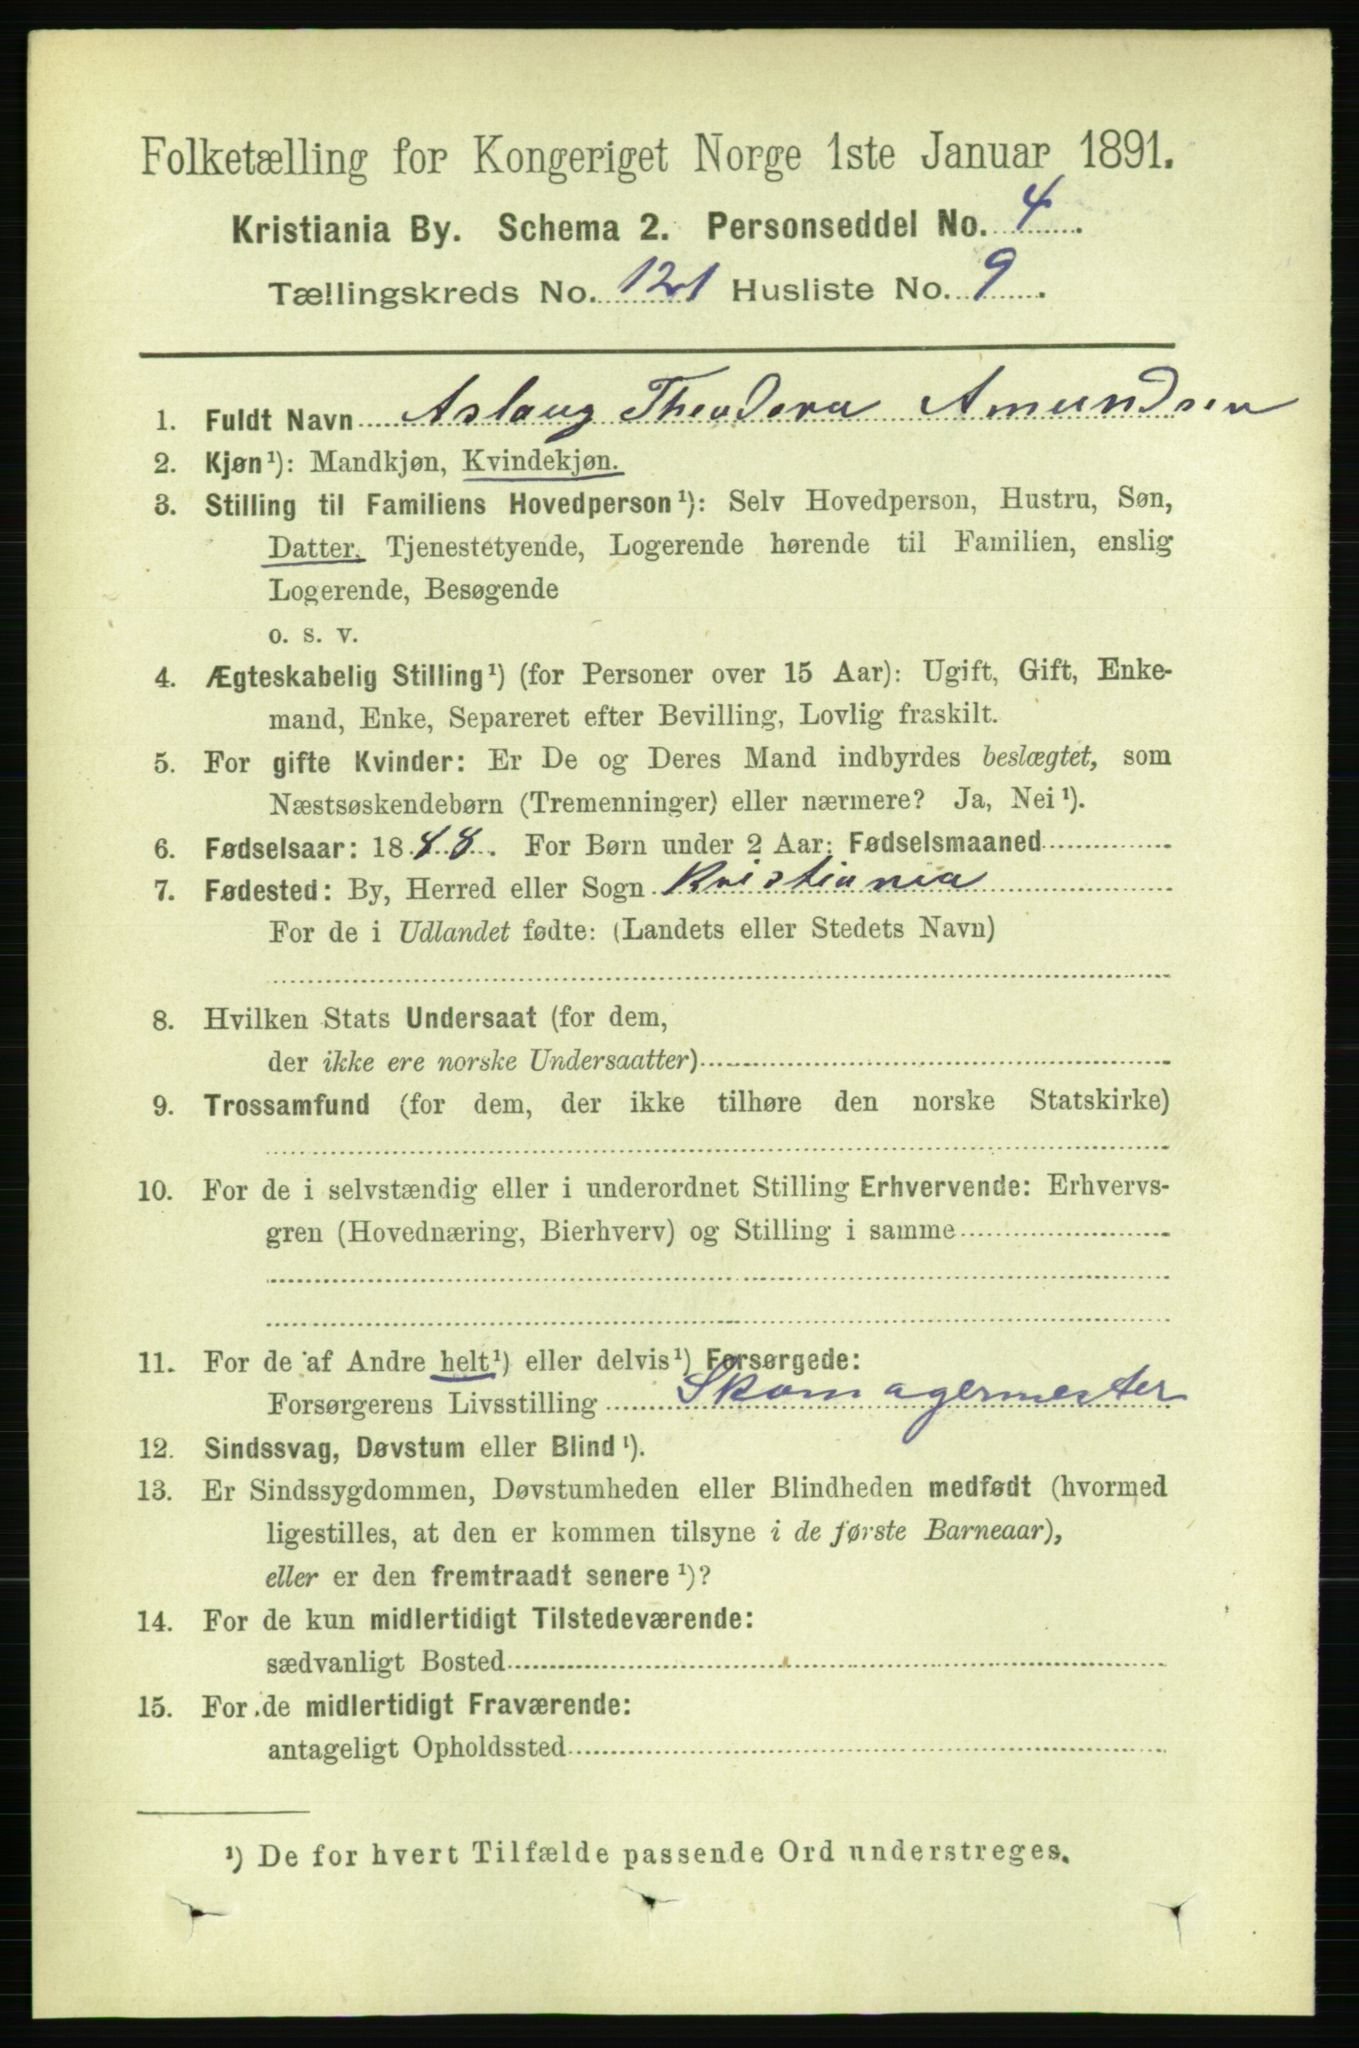 Folketælling for Kongeriget Norge 1ste Januar 1891.
Kristiania By. Schema 2. Personseddel No. 4.
Tællingskreds No. 121 Husliste No. 9.
1. Fuldt Navn Aslaug Theodora Amundsen
2. Kjøn¹): Mandkjøn, Kvindekjøn.
3. Stilling til Familiens Hovedperson¹): Selv Hovedperson, Hustru, Søn,
Datter, Tjenestetyende, Logerende hørende til Familien, enslig
Logerende, Besøgende
o. s. v.
4. Ægteskabelig Stilling¹) (for Personer over 15 Aar): Ugift, Gift, Enke-
mand, Enke, Separeret efter Bevilling, Lovlig fraskilt.
5. For gifte Kvinder: Er De og Deres Mand indbyrdes beslægtet, som
Næstsøskendebørn (Tremenninger) eller nærmere? Ja, Nei¹).
6. Fødselsaar: 1888. For Børn under 2 Aar: Fødselsmaaned
7. Fødested: By, Herred eller Sogn Kristiania
For de i Udlandet fødte: (Landets eller Stedets Navn)
8. Hvilken Stats Undersaat (for dem,
der ikke ere norske Undersaatter)
9. Trossamfund (for dem, der ikke tilhøre den norske Statskirke)
10. For de i selvstændig eller i underordnet Stilling Erhvervende: Erhvervs-
gren (Hovednæring, Bierhverv) og Stilling i samme
11. For de af Andre helt¹) eller delvis¹) Forsørgede:
Forsørgerens Livsstilling Skomagermester
12. Sindssvag, Døvstum eller Blind¹).
13. Er Sindssygdommen, Døvstumheden eller Blindheden medfødt (hvormed
ligestilles, at den er kommen tilsyne i de første Barneaar),
eller er den fremtraadt senere¹)?
14. For de kun midlertidigt Tilstedeværende:
sædvanligt Bosted
15. For de midlertidigt Fraværende:
antageligt Opholdssted
¹) De for hvert Tilfælde passende Ord understreges.